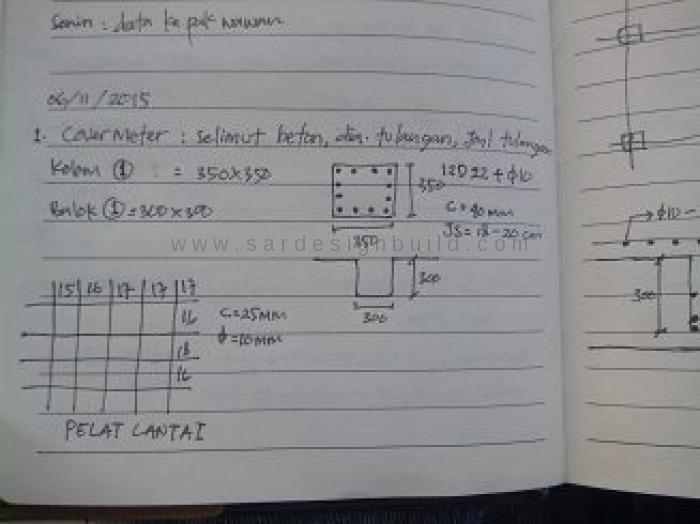 Senin : data ke pak wawan
06/11/2015
1. CoverMeter : selimut beton, dia. tulangan, jml tulangan
Kolom ① : = 350x350
350
12D22 + ϕ10
C = 40 mm
JS = 18 - 20 cm
350
Balok ① = 300 x 300
www.sardesignbuild.com
300
300
15 16 17 17 17
16
18
16
C = 25MM
ϕ = 10MM
PELAT LANTAI
ϕ10 -
300